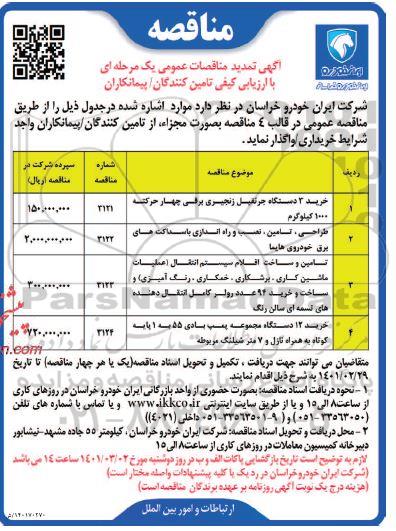 مناقصه
ایران خودرو
آگهی تمدید مناقصات عمومی یک مرحله ای
با ارزیابی کیفی تامین کنندگان/ پیمانکاران
شرکت ایران خودرو خراسان در نظر دارد موارد اشاره شده درجدول ذیل را از طریق
مناقصه عمومی در قالب ٤ مناقصه بصورت مجزاء، از تامین کنندگان /پیمانکاران واجد
شرایط خریداری/واگذار نماید.
ردیف موضوع مناقصه شماره مناقصه سپرده شرکت در مناقصه (ریال)
۱ خریـد ۳ دستگاه جرثقیـل زنجیـری برقـی چهـار حرکتـه ۱۰۰۰ کیلوگرم ۳۱۲۱ ۱۵۰,۰۰۰,۰۰۰
۲ طراحـی، تـامیـن، نصـب و راه انـدازی باسـداکـت هـای بـرق خـودروی هایما ۳۱۲۲ ۲,۰۰۰,۰۰۰,۰۰۰
۳ تـامیـن و سـاخت اقـلام سیستـم انتقـال (عملیـات ماشیـن کـاری، برشـکاری، خمـکاری، رنـگ آمیـزی) و ساخـت و خریـد ۹۴ عـدد رولـر کامـل انتقـال دهنـده هـای تسمه ای سالن رنگ ۳۱۲۳ ۳۰۰,۰۰۰,۰۰۰
۴ خریـد ۱۲ دستگاه مجموعـه پمـپ بـادی ۵۵ بـه ۱ پایـه کوتاه به همراه نازل و ۷ متر شیلنگ مربوطه ۳۱۲۴ ۷۲۰,۰۰۰,۰۰۰
متقاضیان می توانند جهت دریافت ، تکمیل و تحویل اسناد مناقصه(یک یا هر چهار مناقصه) تا تاریخ
۱۴۰۱/۰۲/۲۹ به شرح ذیل اقدام نمایند.
۱ - نحوه دریافت اسناد مناقصه: بصورت حضوری از واحد بازرگانی ایران خودرو خراسان در روزهای کاری
از ساعت۸ الی ۱۵ و یا از طریق سایت اینترنتی www.ikkco.ir و یا تماس با شماره های تلفن
(۳۳۵۶۳۰۵۰-۰۵۱) و (۹-۳۳۵۶۳۵۰۱-۰۵۱ داخلی (۴۰۲۱))
۲ - محل دریافت و تحویل اسناد مناقصه: شرکت ایران خودرو خراسان ، کیلومتر ۵۵ جاده مشهد-نیشابور
دبیرخانه کمیسیون معاملات در روزهای کاری از ساعت۸ الی ۱۵
لازم به توضیح است تاریخ بازگشایی پاکات الف و ب در روز دوشنبه مورخ ۱۴۰۱/۰۳/۰۲ ساعت ۱۴ می باشد
(شرکت ایران خودرو خراسان در رد یک یا کلیه پیشنهادات واصله مختار است)
(هزینه درج یک نوبت آگهی روزنامه بر عهده برندگان مناقصه است)
ارتباطات و امور بین الملل